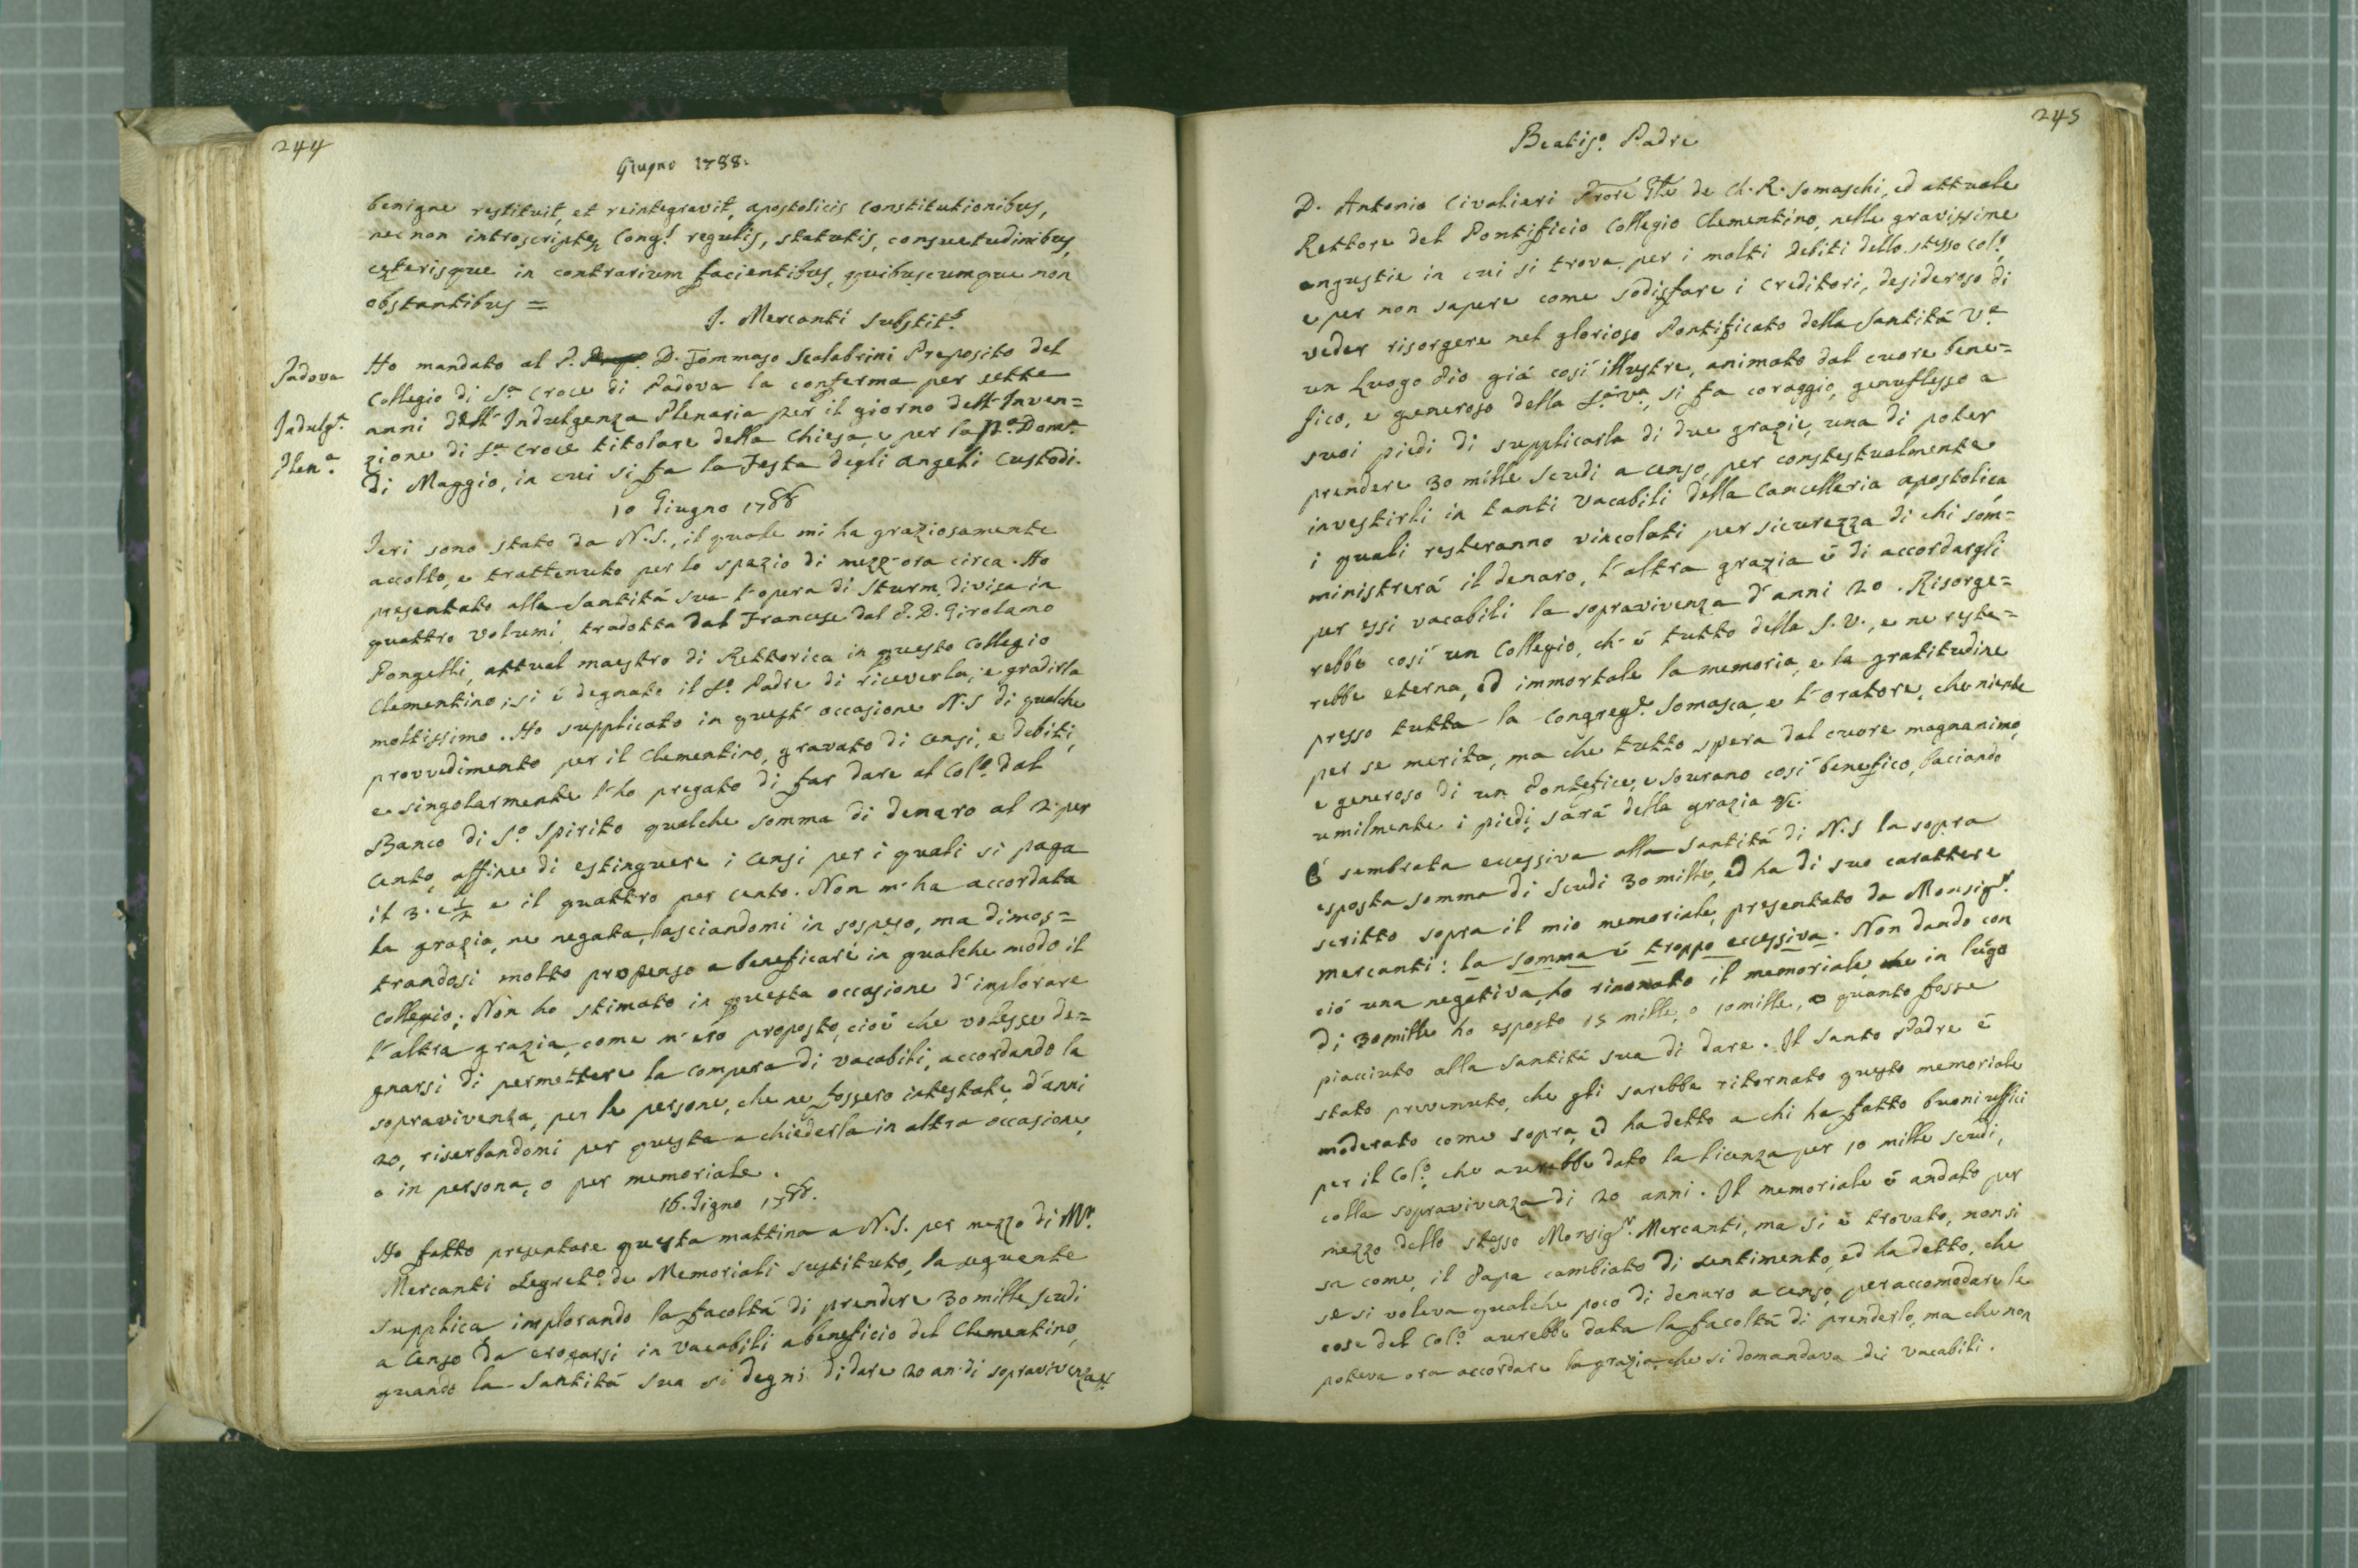 244
Giugno 1788.
benigne restituit, et reintegravit, apostolicis constitutionibus,
nec non introscriptæ Cong.ˢ regulis, statutis, consuetudinibus,
cęterisque in contrarium facientibus, quibuscumque non
obstantibus =
J. Mercanti Substit.ˢ
Padova
Indulg.ª
Plen.ª
Ho mandato al P. D. Tommaso Scalabrini Preposito del
Collegio di S.ª Croce di Padova la conferma per sette
anni dell'Indulgenza Plenaria per il giorno dell'Inven=
zione di S.ª Croce titolare della Chiesa, e per la p.ª Dom.ª
di Maggio, in cui si fa la Festa degli Angeli Custodi.
10 Giugno 1788
Jeri sono stato da N.S., il quale mi ha graziosamente
accolto, e trattenuto per lo spazio di mezz'ora circa. Ho
presentato alla Santitá sua l'opera di Sturm, divisa in
quattro volumi, tradotta dal Francese dal P. D. Girolamo
Pongelli, attual maestro di Rettorica in questo Collegio
Clementino; si é degnato il S.º Padre di riceverla, e gradirla
moltissimo. Ho supplicato in quest'occasione N.S di qualche
provvedimento per il Clementino, gravato di Censi, e debiti,
e singolarmente l'ho pregato di far dare al Col.º dal
Banco di S.º Spirito qualche somma di denaro al 2. per
cento, affine di estinguere i Censi per i quali si paga
il 3. e 1/2 e il quattro per cento. Non m'ha accordata
la grazia, ne negata, lasciandomi in sospeso, ma dimos=
trandosi molto propenso a beneficare in qualche modo il
Collegio; Non ho stimato in questa occasione d'implorare
l'altra grazia, come m'ero proposto, cioé che volesse de=
gnarsi di permettere la compera di vacabili, accordando la
sopravivenza, per le persone, che ne fossero intestate, d'anni
20, riserbandomi per questa a chiederla in altra occasione,
o in persona, o per memoriale.
16. Giugno 1788.
Ho fatto presentare questa mattina a N.S. per mezzo di Mr.
Mercanti Segret.º de Memoriali sustituto, la seguente
supplica implorando la facoltá di prendere 30 mille scudi
a Censo da erogarsi in vacabili a beneficio del Clementino,
quando la Santitá sua si degni di dare 20 an. di sopravivenza
245
Beatis.º Padre
D. Antonio Civalieri de Ch. R. Somaschi, ed attuale
Rettore del Pontificio Collegio Clementino, nelle gravissime
angustie in cui si trova per i molti debiti dello stesso Col.º
e per non sapere come sodisfare i creditori, desideroso di
veder risorgere nel glorioso Pontificato della Santitá V.ª
un Luogo Pio giá cosí illustre, animato dal cuore bene=
fico, e generoso della S.ª V.ª, si fa coraggio, genuflesso a
suoi piedi di supplicarla di due grazie, una di poter
prendere 30 mille scudi a censo, per constestualmente
investirli in tanti vacabili della Cancelleria apostolica
i quali resteranno vincolati per sicurezza di chi som=
ministrerá il denaro, l'altra grazia é di accordargli
per essi vacabili la sopravivenza d'anni 20. Risorge=
rebbe cosí un Collegio, ch'é tutto della S.V., e ne reste=
rebbe eterna, ed immortale la memoria, e la gratitudine
presso tutta la Congreg.ᵉ Somasca, e l'oratore, che niente
per se merita, ma che tutto spera dal cuore magnanimo,
e generoso di un Pontefice, e sourano cosí benefico, baciando
umilmente i piedi, sará della grazia &c.
É sembrata eccessiva alla Santitá di N.S la sopra
esposta somma di scudi 30 mille, ed ha di suo carattere
scritto sopra il mio memoriale, presentato da Monsig.ʳ
Mercanti: la somma é troppo eccessiva. Non dando con
ció una negativa, ho rinovato il memoriale, in lúgo
di 30 mille ho esposto 15 mille, o 10 mille, o quanto fosse
piacciuto alla Santitá sua di dare. Il Santo Padre é
stato prevenuto, che gli sarebbe ritornato questo memoriale
moderato come sopra, ed ha detto a chi ha fatto buoni uffici
per il Col.º, che aurebbe dato la licenza per 10 mille scudi,
colla sopravivenza di 20 anni. Il memoriale é andato per
mezzo dello stesso Monsig.ʳ Mercanti, ma si é trovato, non si
sa come, il Papa cambiato di sentimento, ed ha detto, che
se si voleva qualche poco di denaro a censo, per accomodare le
cose del Col.º aurebbe data la facoltá di prenderlo, ma che non
poteva ora accordare la grazia, che si domandava dei vacabili.